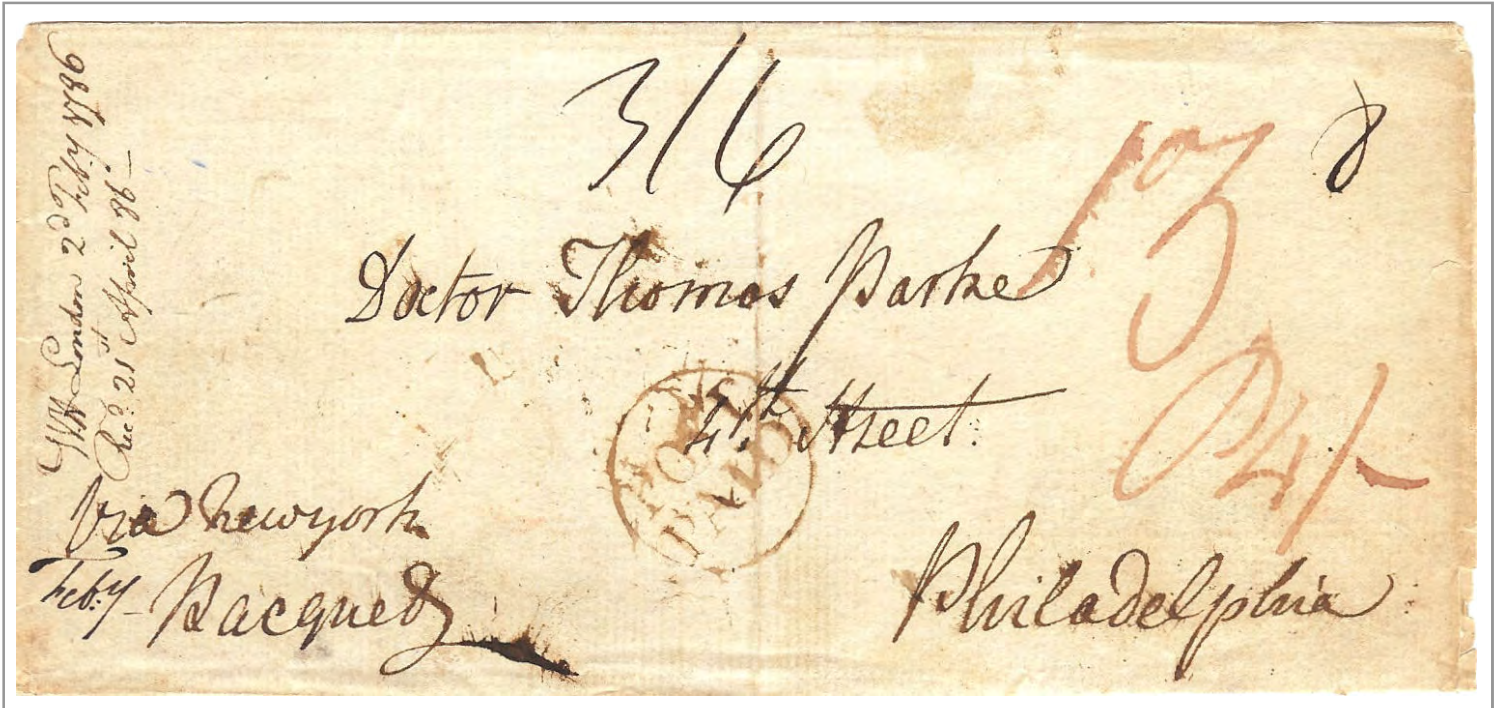 London 2d Feby 1786
Recd. 21st April 86 —
3/6
8
Doctor Thomas Parke
4th Street.
POST
PAID
Via Newyork
Feby Pacquet
Philadelphia